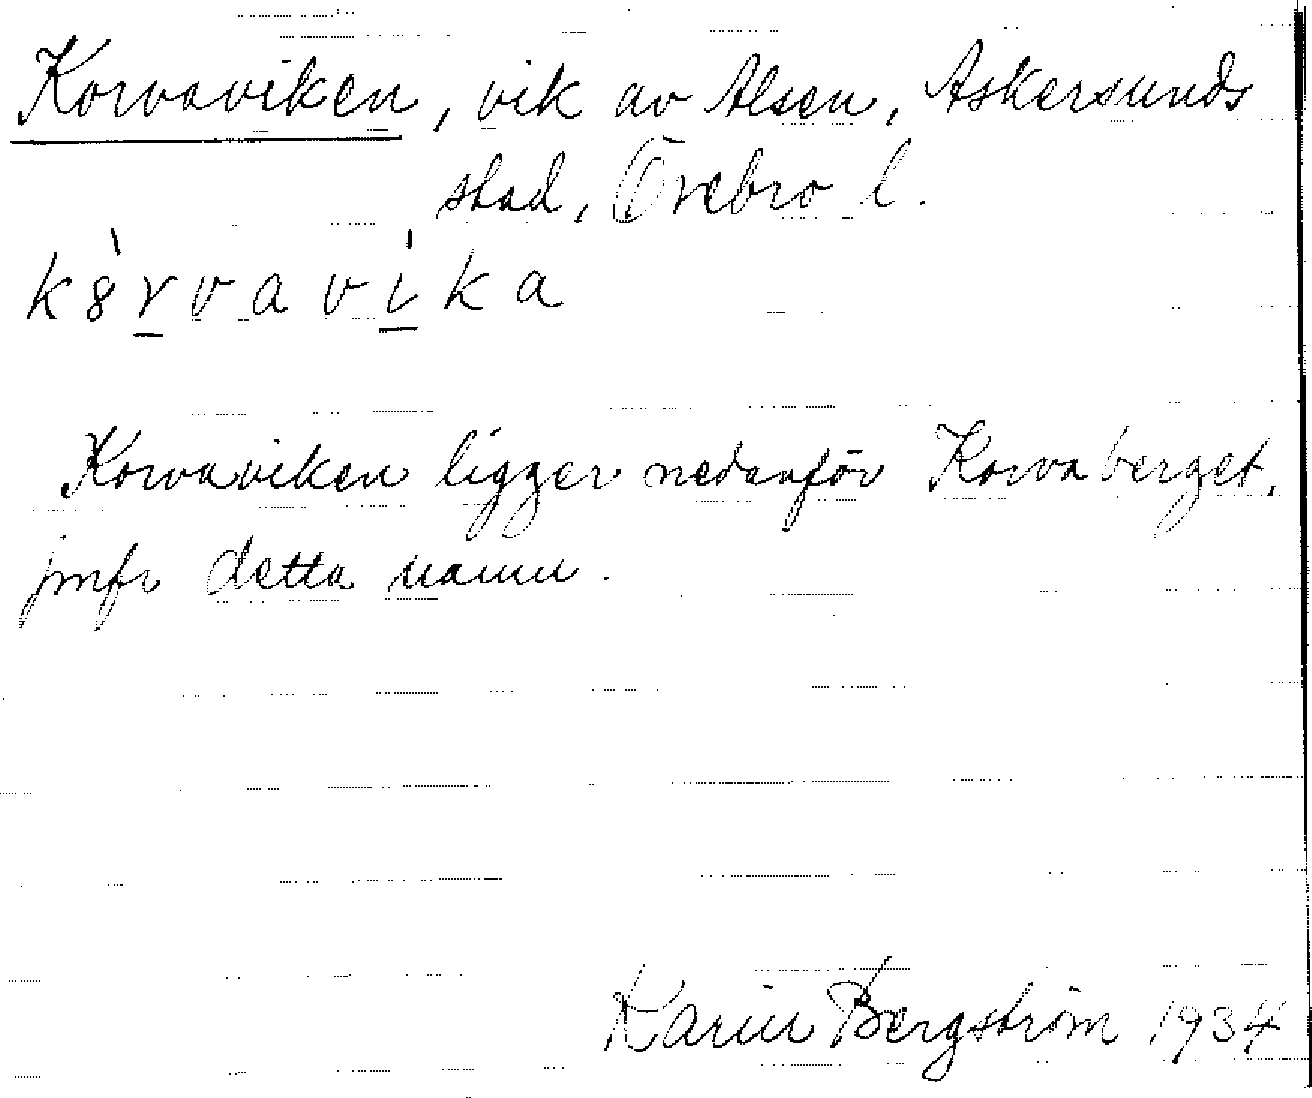 Korvaviken, vik av Alsen, Askersunds
stad, Örebro l.
k8̀rvavíka
Korvaviken ligger nedanför Korvaberget,
jmfr detta namn.
Karin Bergström 1934